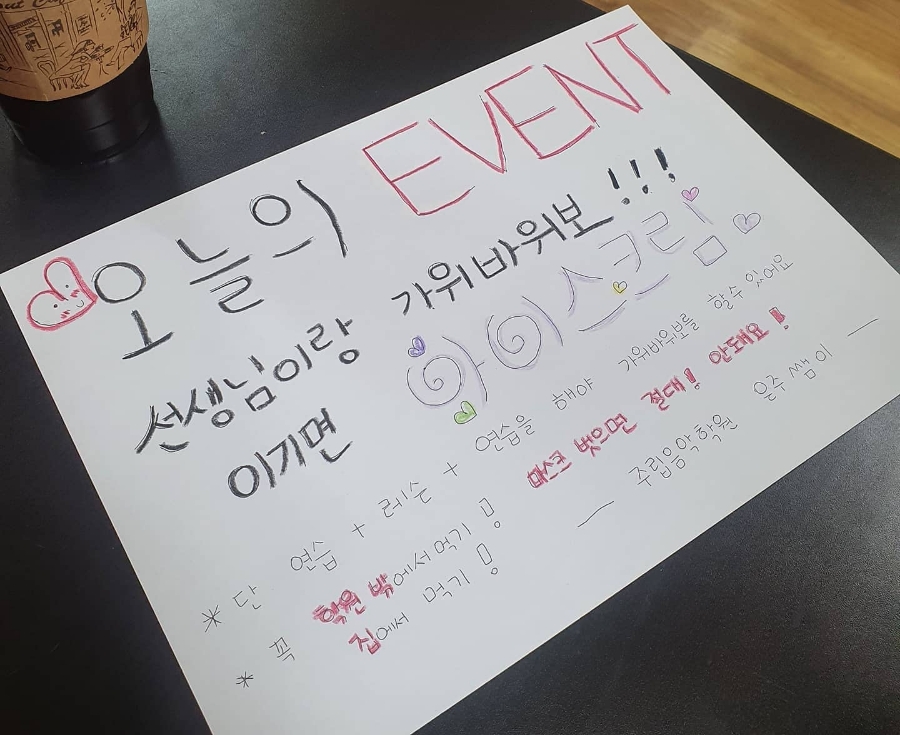 오늘의 EVENT
선생님이랑 가위바위보!!!
이기면 아이스크림
* 단 연습 + 레슨 + 연습을 해야 가위바위보를 할수있어요
* 꼭 학원 밖에서 먹기! 마스크 벗으면 절대! 안돼요!
집에서 먹기!
— 주립음악학원 은주쌤이 —